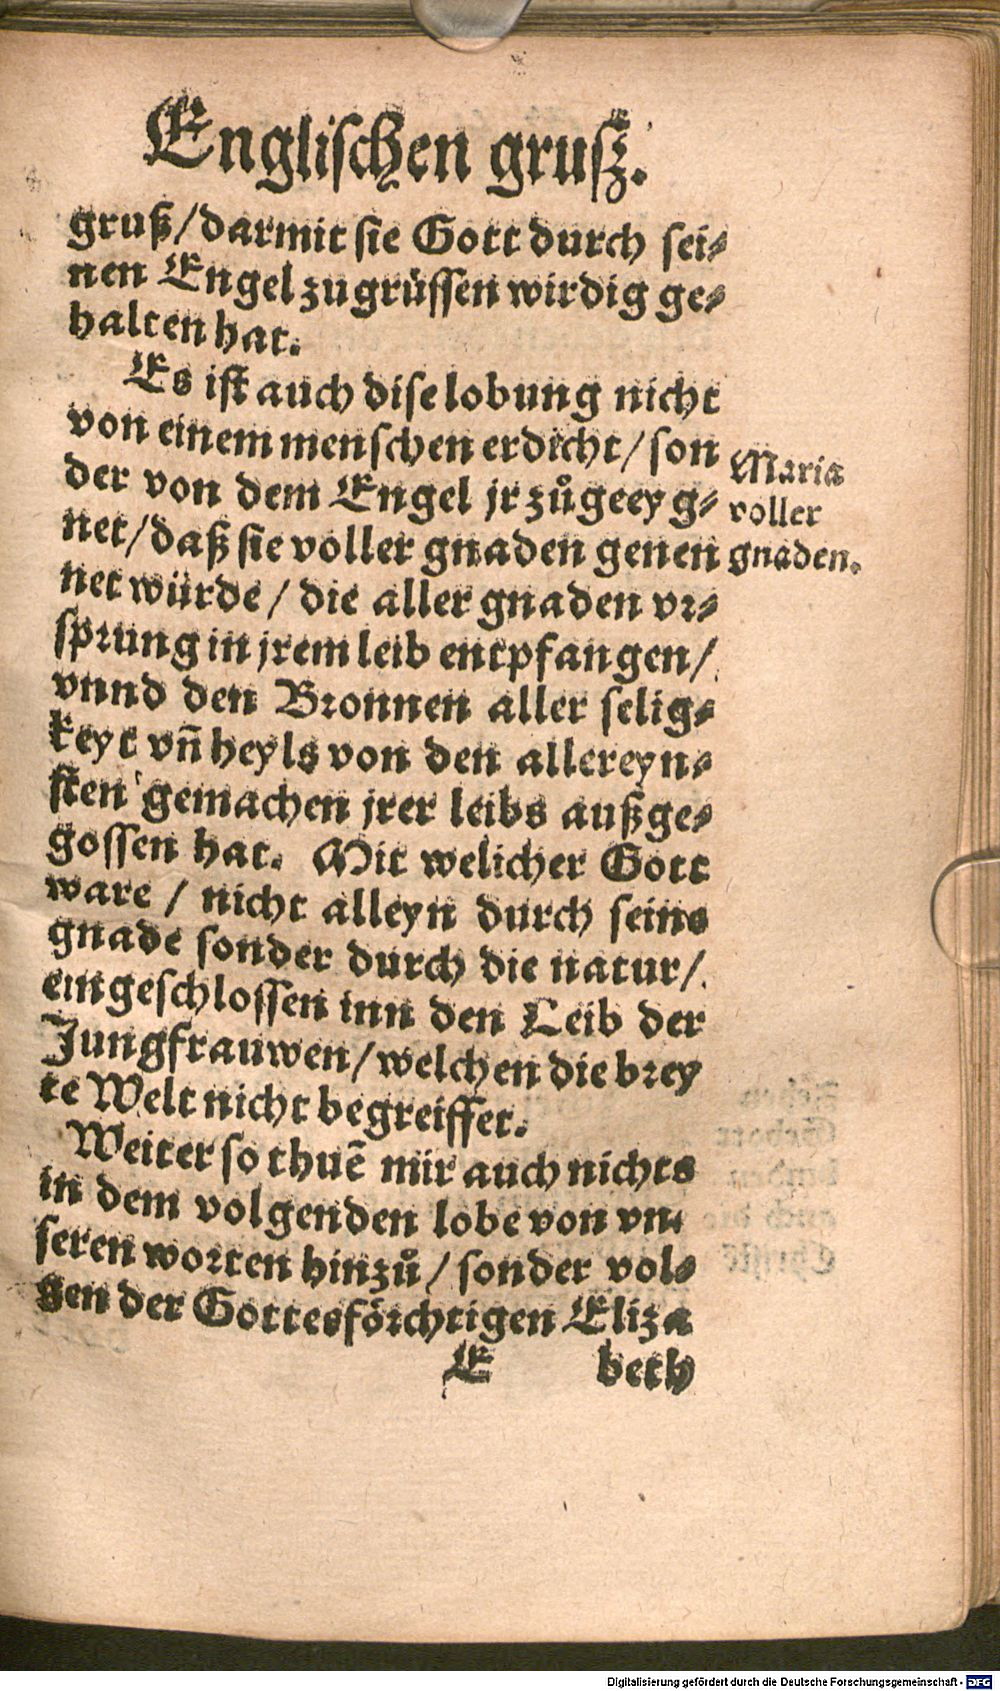 Englischen grusz.
gruß/darmit sie Gott durch sei⸗
nen Engel zugrüssen wirdig ge⸗
halten hat.
Es ist auch dise lobung nicht
von einem menschen erdicht/son
der von dem Engel jr zůgeeyg⸗
net/daß sie voller gnaden genen
net würde/die aller gnaden vr⸗
sprung in jrem leib entpfangen/
vnnd den Bronnen aller selig⸗
keyt vñ heyls von den allereyn⸗
sten gemachen jrer leibs außge⸗
gossen hat. Mit welicher Gott
ware/nicht alleyn durch seine
gnade sonder durch die natur/
eingeschlossen inn den Leib der
Jungfrauwen/welchen die brey
te Welt nicht begreiffet.
Weiter so thuẽ mir auch nichts
in dem volgenden lobe von vn⸗
seren worten hinzů/sonder vol⸗
gen der Gottesförchtigen Eliza
E beth
Maria
voller
gnaden.
Digitalisierung gefördert durch die Deutsche Forschungsgemeinschaft - DFG